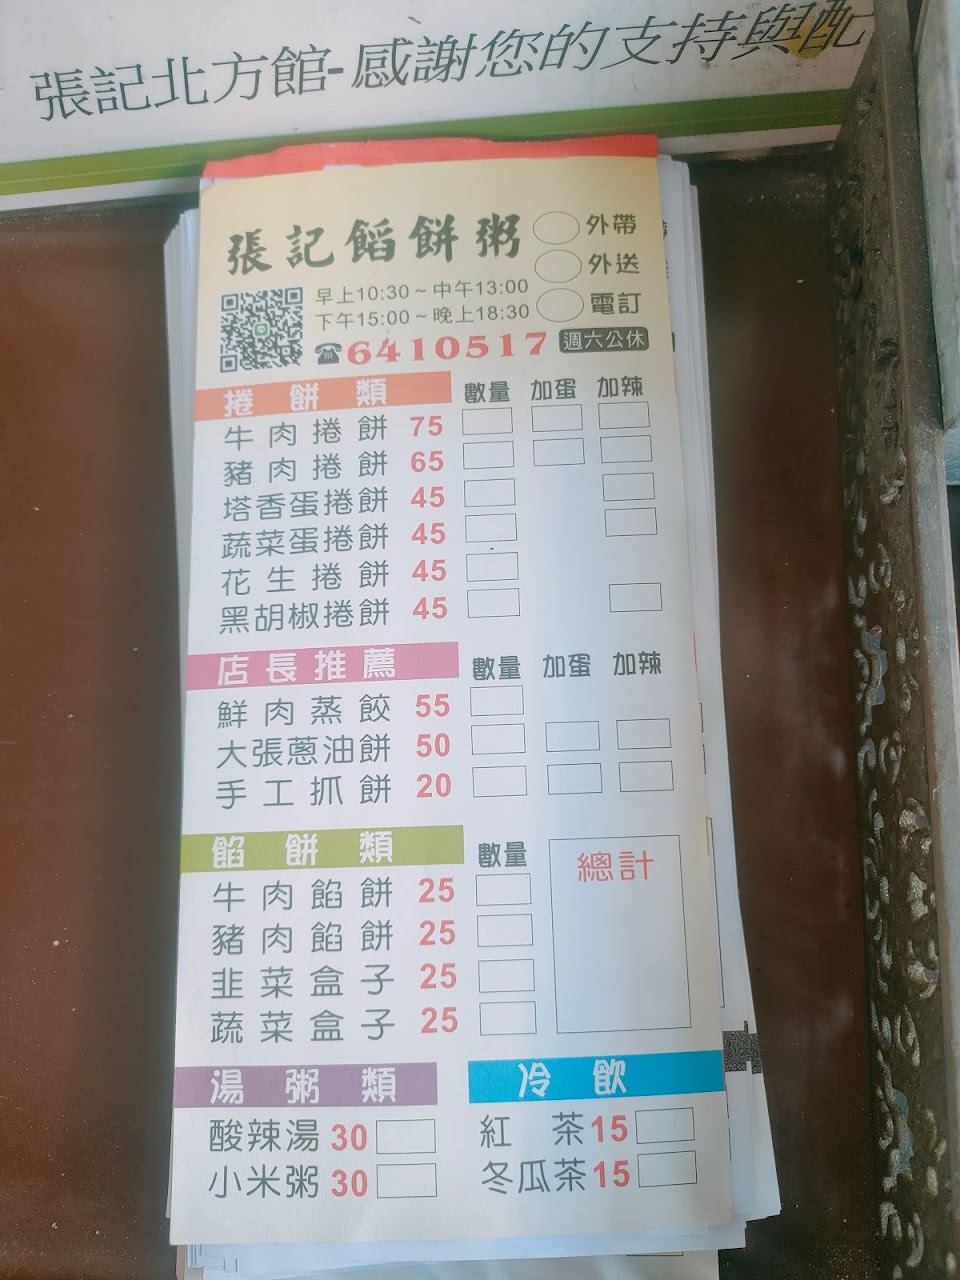 張記北方館-感謝您的支持與配
張記餡餅粥
外帶
外送
電訂
早上10:30~中午13:00
下午15:00~晚上18:30
☎6410517 週六公休
捲餅類 數量 加蛋 加辣
牛肉捲餅 75
豬肉捲餅 65
塔香蛋捲餅 45
蔬菜蛋捲餅 45
花生捲餅 45
黑胡椒捲餅 45
店長推薦 數量 加蛋 加辣
鮮肉蒸餃 55
大張蔥油餅 50
手工抓餅 20
餡餅類 數量
總計
牛肉餡餅 25
豬肉餡餅 25
韭菜盒子 25
蔬菜盒子 25
湯粥類
酸辣湯 30
小米粥 30
冷飲
紅茶 15
冬瓜茶 15